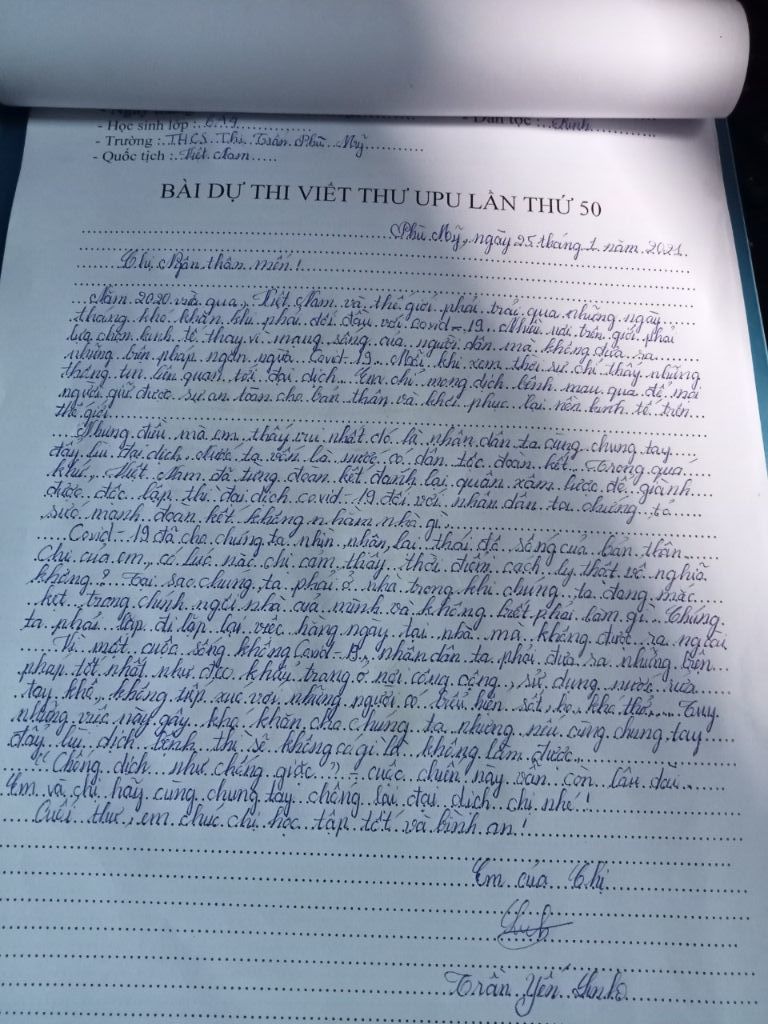 - Học sinh lớp :
- Dân tộc : Kinh
- Trường : THCS Thị Trấn Phù Mỹ
- Quốc tịch : Việt Nam
BÀI DỰ THI VIẾT THƯ UPU LẦN THỨ 50
Phù Mỹ, ngày 25 tháng 1 năm 2021.
Chị thân mến!
Năm 2020 vừa qua, Việt Nam và thế giới phải trải qua những ngày
tháng khó khăn khi phải đối đầu với covid-19. Nhiều nơi trên giới phải
lựa chọn kinh tế thay vì mạng sống của người dân mà không đưa ra
những biện pháp ngăn ngừa Covid-19. Mỗi khi xem thời sự chỉ thấy những
thông tin liên quan tới đại dịch. Em chỉ mong dịch bệnh mau qua để mọi
người giữ được sự an toàn cho bản thân và khôi phục lại nền kinh tế trên
thế giới.
Nhưng điều mà em thấy vui nhất đó là nhân dân ta cùng chung tay
đẩy lùi đại dịch. Nước ta vốn là nước có dân tộc đoàn kết. Trong quá
khứ, Việt Nam đã từng đoàn kết đánh lại quân xâm lược để giành
được độc lập thì đại dịch covid-19 đối với nhân dân ta chứng tỏ
sức mạnh đoàn kết không nhằm nhò gì.
Covid-19 đã cho chúng ta nhìn nhận lại thái độ sống của bản thân.
Chị của em, có lúc nào chị cảm thấy thời điểm cách ly thật vô nghĩa
không? Tại sao chúng ta phải ở nhà trong khi chúng ta đang mắc
kẹt trong chính ngôi nhà của mình và không biết phải làm gì. Chúng
ta phải lặp đi lặp lại việc hàng ngày tại nhà mà không được ra ngoài
Vì một cuộc sống không Covid-19, nhân dân ta phải đưa ra những biện
pháp tốt nhất như đeo khẩu trang ở nơi công cộng, sử dụng nước rửa
tay khô, không tiếp xúc với những người có biểu hiện sốt, ho, khó thở,... Tuy
những việc này gây khó khăn cho chúng ta nhưng nếu cùng chung tay
đẩy lùi dịch bệnh thì sẽ không có gì là không làm được.
"Chống dịch như chống giặc" - cuộc chiến này vẫn còn lâu dài.
Em và chị hãy cùng chung tay chống lại đại dịch chị nhé!
Cuối thư, em chúc chị học tập tốt và bình an!
Em của Chị
Trần Yến Linh